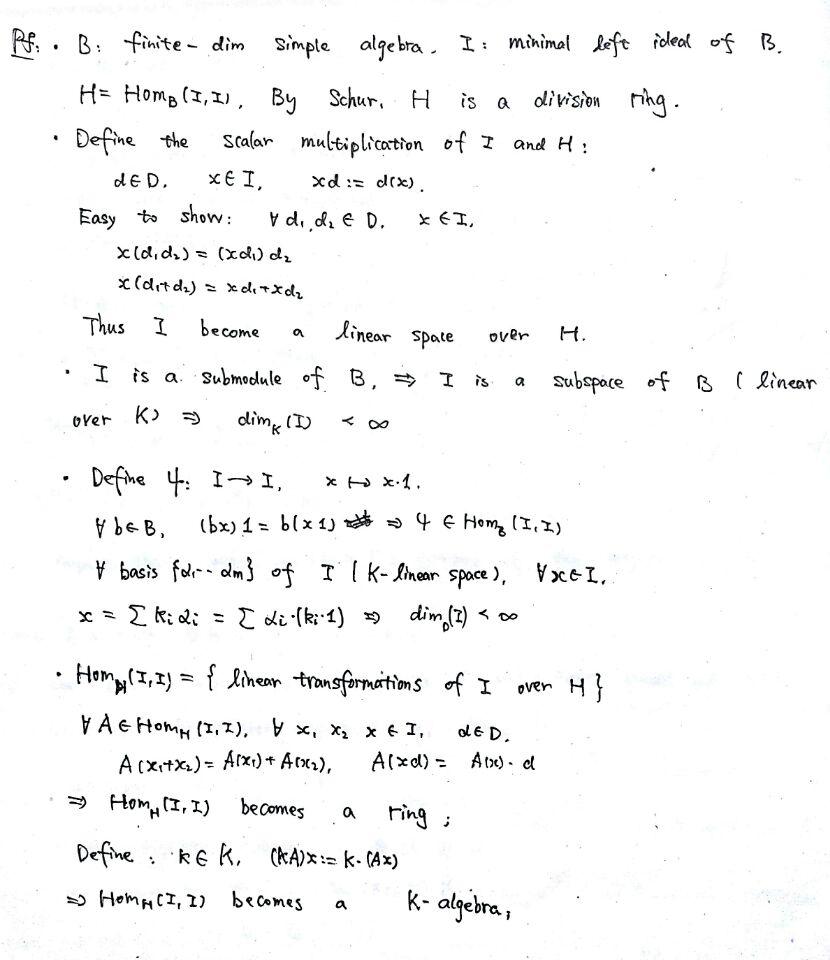 Pf: · B: finite-dim simple algebra. I: minimal left ideal of B.
H = Hom_B(I,I), By Schur, H is a division ring.
· Define the scalar multiplication of I and H:
d∈D, x∈I, xd := d(x).
Easy to show: ∀ d₁,d₂ ∈ D, x∈I,
x(d₁d₂) = (xd₁)d₂
x(d₁+d₂) = xd₁+xd₂
Thus I become a linear space over H.
· I is a submodule of B, ⇒ I is a subspace of B (linear
over K) ⇒ dim_K(I) < ∞
· Define φ: I→I, x ↦ x·1.
∀b∈B, (bx)1 = b(x1) ⇒ φ ∈ Hom_B(I,I)
∀ basis {α₁--αm} of I (K-linear space), ∀x∈I,
x = Σ kᵢαᵢ = Σ αᵢ·(kᵢ·1) ⇒ dim_D(I) < ∞
· Hom_H(I,I) = { linear transformations of I over H }
∀ A∈Hom_H(I,I), ∀ x₁ x₂ x ∈ I, d∈D,
A(x₁+x₂) = A(x₁)+A(x₂), A(xd) = A(x)·d
⇒ Hom_H(I,I) becomes a ring;
Define: k∈K, (kA)x := k·(Ax)
⇒ Hom_H(I,I) becomes a K-algebra,